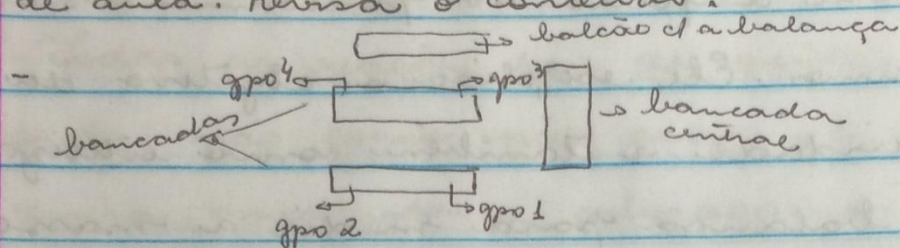 de aula. Revisa o conteúdo.
balcão c/ a balança
gpo 4 gpo 3
bancadas
bancada
central
gpo 2 gpo 1